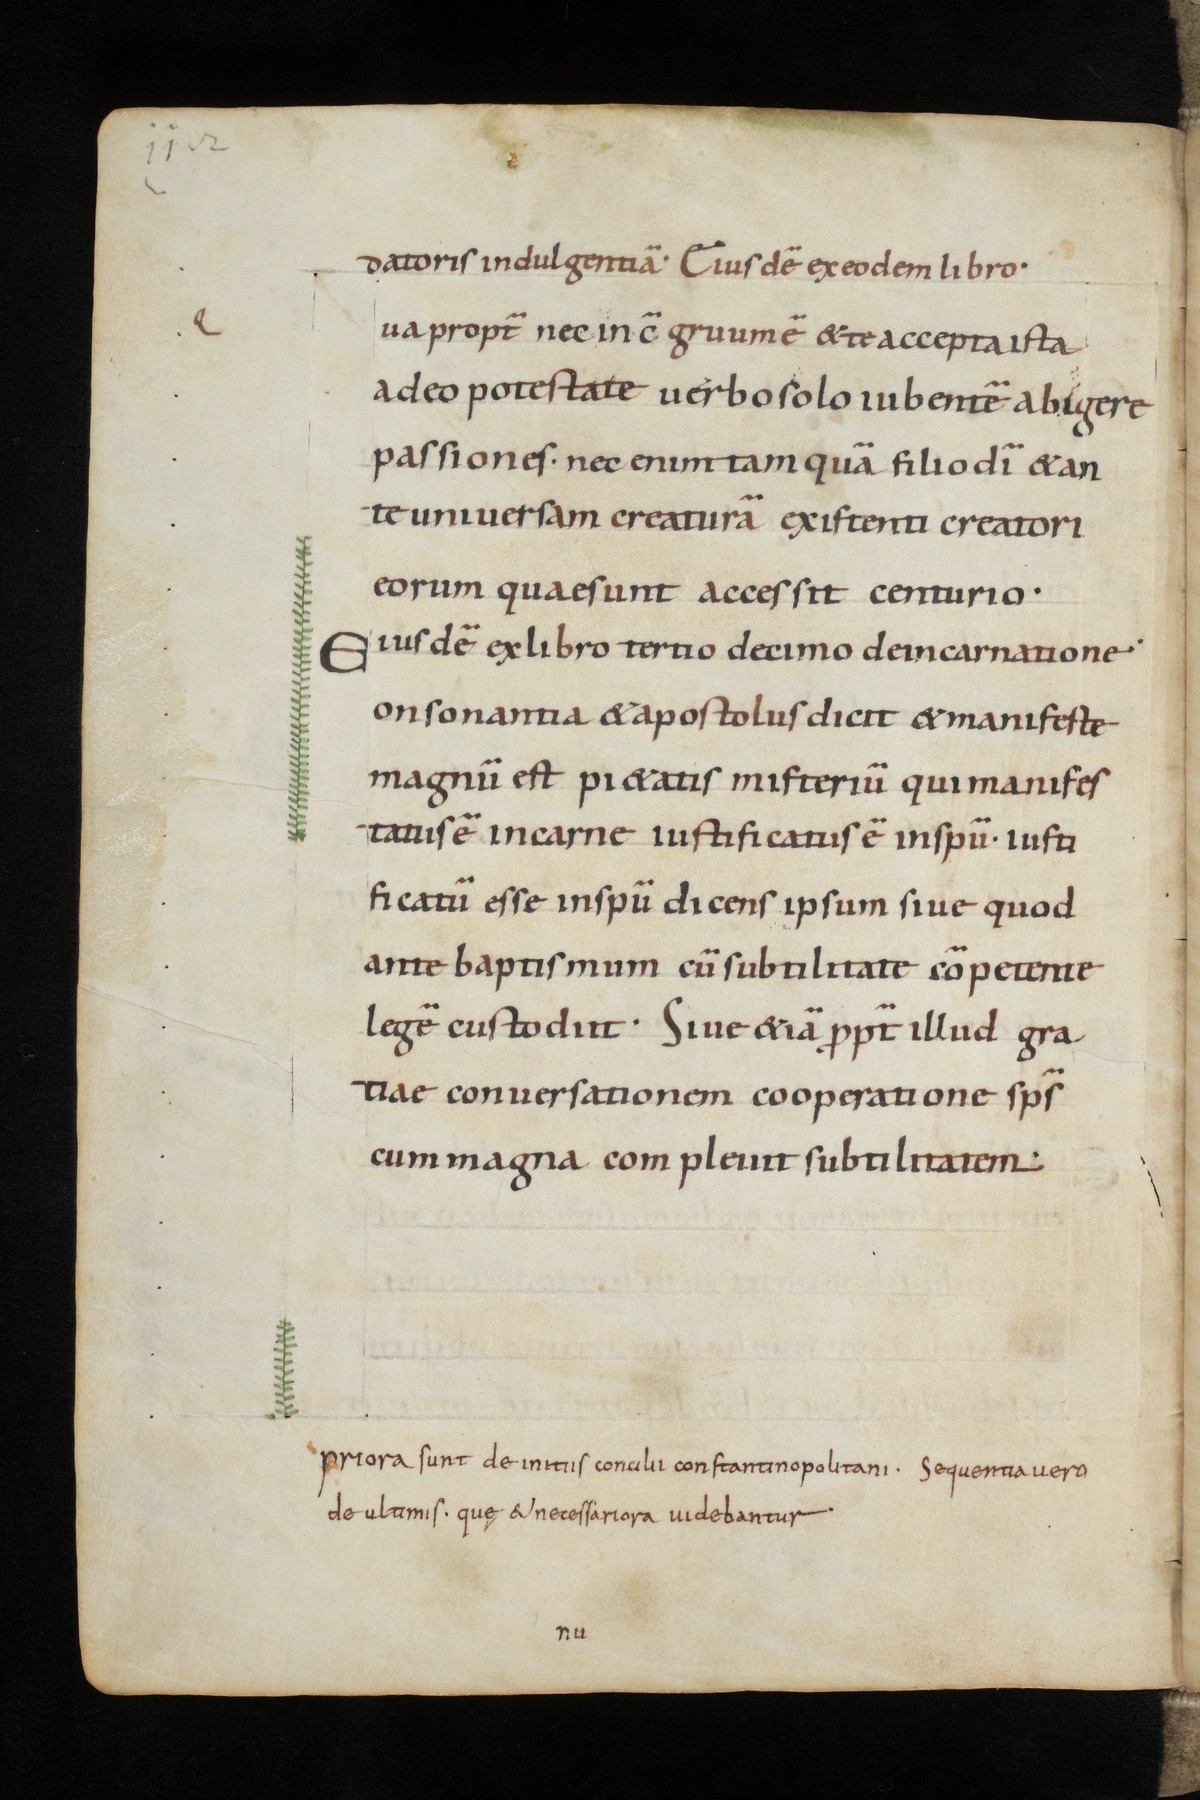 datoris indulgentiā· Eiusdē exeodem libro·
q
ua propt̄ nec in c̄gruum ē &te accepta ista
adeo potestate uerbo solo iubentē abigere
passiones· nec enim tam quā filio dī &an
te uniuersam creaturā existenti creatori
eorum quae sunt accessit centurio·
Eiusdē ex libro tertio decimo deincarnatione·
onsonantia &apostolus dicit &manifeste
magnū est pi&atis misteriū qui manifes
tatus ē incarne iustificatus ē inspū· iusti
ficatū esse inspū dicens ipsum siue quod
ante baptismum cū subtilitate cōpetente
legē custodiit· Siue &iā ꝓpt̄ illud gra
tiae conuersationem cooperatione sps̄
cum magna compleuit subtilitatem·
priora sunt de initiis concilii constantinopolitani· Sequentia uero
de ultimis· quę & necessariora uidebantur·
nu